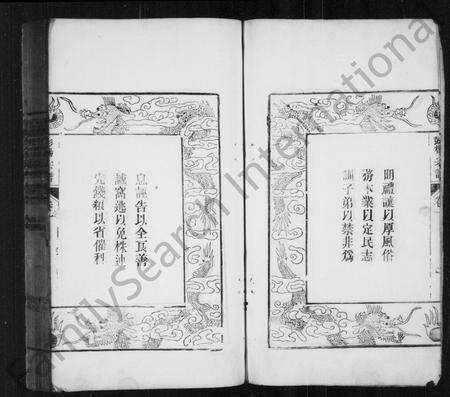 明禮讓以厚風俗
務本業以定民志
訓子弟以禁非爲
息誣告以全良善
誡窩逃以免株連
完錢糧以省催科
FamilySearch International